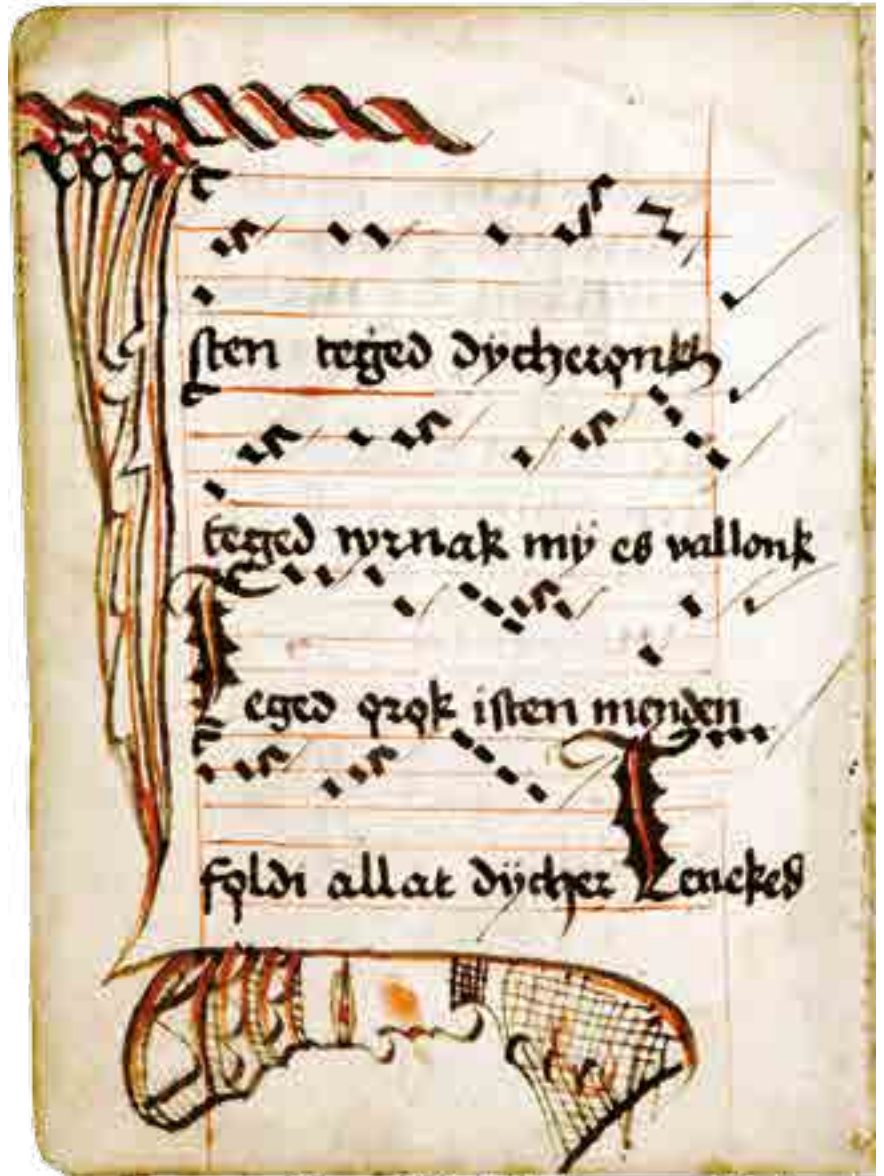 sten teged dÿcherǫnk
teged wrnak mÿ es vallonk
Teged ǫrǫk isten menden
fǫldi allat dÿcher Tenekes